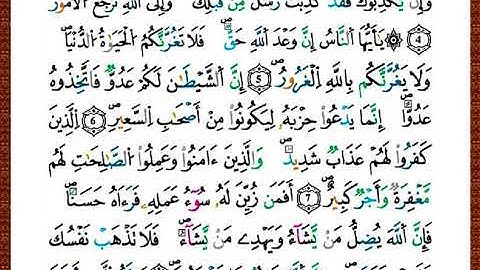 وَإِن يُكَذِّبُوكَ فَقَدْ كُذِّبَتْ رُسُلٌ مِّن قَبْلِكَ ۚ وَإِلَى اللَّهِ تُرْجَعُ الْأُمُورُ
4 يَٰٓأَيُّهَا النَّاسُ إِنَّ وَعْدَ اللَّهِ حَقٌّ ۖ فَلَا تَغُرَّنَّكُمُ الْحَيَوٰةُ الدُّنْيَا ۖ
وَلَا يَغُرَّنَّكُم بِاللَّهِ الْغَرُورُ 5 إِنَّ الشَّيْطَٰنَ لَكُمْ عَدُوٌّ فَاتَّخِذُوهُ
عَدُوًّا ۚ إِنَّمَا يَدْعُوا۟ حِزْبَهُۥ لِيَكُونُوا۟ مِنْ أَصْحَٰبِ السَّعِيرِ 6 الَّذِينَ
كَفَرُوا۟ لَهُمْ عَذَابٌ شَدِيدٌ ۖ وَالَّذِينَ ءَامَنُوا۟ وَعَمِلُوا۟ الصَّٰلِحَٰتِ لَهُم
مَّغْفِرَةٌ وَأَجْرٌ كَبِيرٌ 7 أَفَمَن زُيِّنَ لَهُۥ سُوٓءُ عَمَلِهِۦ فَرَءَاهُ حَسَنًا ۖ
فَإِنَّ اللَّهَ يُضِلُّ مَن يَشَآءُ وَيَهْدِى مَن يَشَآءُ ۖ فَلَا تَذْهَبْ نَفْسُكَ